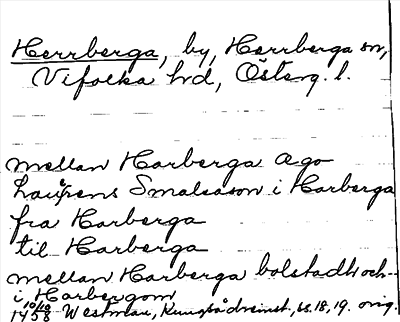 Herrberga, by, Herrberga sn,
Vifolka hd, Österg. l.
mellan Harberga ago
Laurens Smaleason i Harberga
fra Harberga
til Harberga
mellan Harberga bolstadh och
i Harbergom
10/10 1458 Westman, Kungsådreinst., bs. 18, 19. orig.